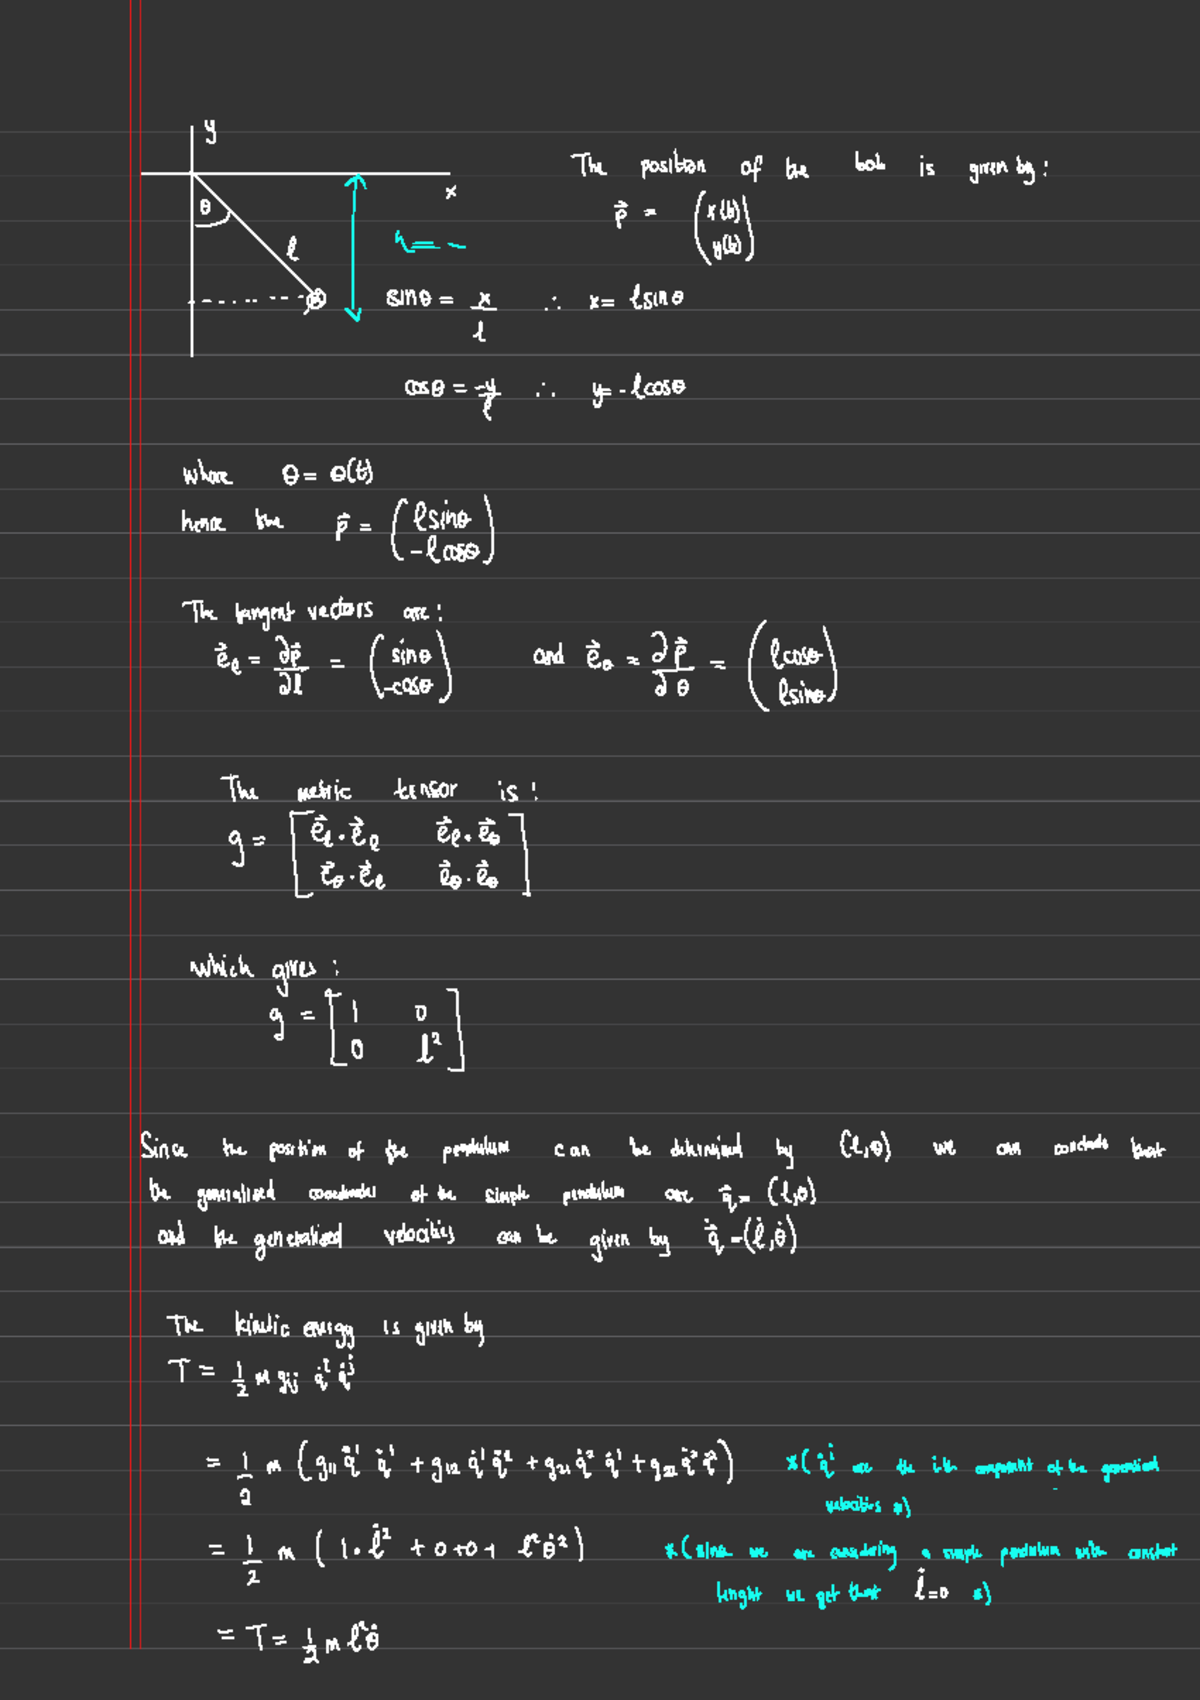 y
The position of the bob is given by:
x
θ
l
p⃗ = (x(t) y(t))
h = -
sinθ = x/l ∴ x = lsinθ
cosθ = -y/l ∴ y = -lcosθ
where θ = θ(t)
hence the p⃗ = (lsinθ -lcosθ)
The tangent vectors are:
e⃗l = ∂p⃗/∂l = (sinθ -cosθ) and e⃗θ = ∂p⃗/∂θ = (lcosθ lsinθ)
The metric tensor is:
g = [e⃗l·e⃗l e⃗l·e⃗θ
e⃗θ·e⃗l e⃗θ·e⃗θ]
which gives:
g = [1 0
0 l²]
Since the position of the pendulum can be determined by (l,θ) we can conclude that
the generalised coordinates of the simple pendulum are q⃗ = (l,θ)
and the generalised velocities can be given by q⃗̇ = (l̇,θ̇)
The kinetic energy is given by
T = 1/2 m gij q̇ⁱ q̇ʲ
= 1/2 m (g11 q̇¹ q̇¹ + g12 q̇¹ q̇² + g21 q̇² q̇¹ + g22 q̇² q̇²) *(q̇ⁱ are the i-th component of the generalised
velocities *)
= 1/2 m (1·l̇² + 0+0+ l²θ̇²) *(since we are considering a simple pendulum with constant
lenght we get that l̇=0 *)
= T = 1/2 m l²θ̇